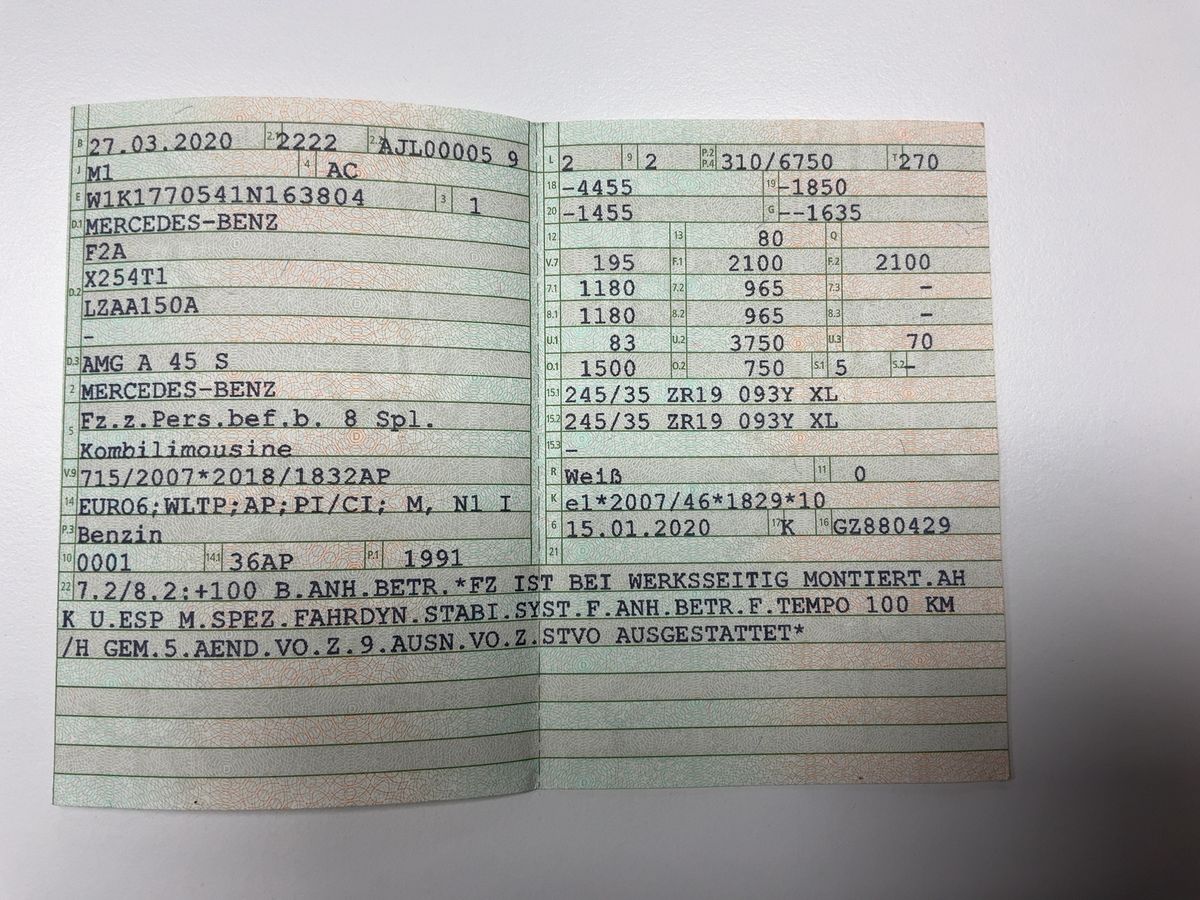 B 27.03.2020 2.1 2222 2.2 AJL00005 9
J M1 4 AC
E W1K1770541N163804 3 1
D.1 MERCEDES-BENZ
F2A
D.2 X254T1
LZAA150A
–
D.3 AMG A 45 S
2 MERCEDES-BENZ
5 Fz.z.Pers.bef.b. 8 Spl.
Kombilimousine
V.9 715/2007*2018/1832AP
14 EURO6;WLTP;AP;PI/CI; M, N1 I
P.3 Benzin
10 0001 14.1 36AP P.1 1991
L 2 9 2 P.2 P.4 310/6750 T 270
18 –4455 19 –1850
20 –1455 G ––1635
12 13 80 Q
V.7 195 F.1 2100 F.2 2100
7.1 1180 7.2 965 7.3 –
8.1 1180 8.2 965 8.3 –
U.1 83 U.2 3750 U.3 70
O.1 1500 O.2 750 S.1 5 S.2 –
15.1 245/35 ZR19 093Y XL
15.2 245/35 ZR19 093Y XL
15.3 –
R Weiß 11 0
K e1*2007/46*1829*10
6 15.01.2020 17 K 16 GZ880429
21
22 7.2/8.2:+100 B.ANH.BETR.*FZ IST BEI WERKSSEITIG MONTIERT.AH
K U.ESP M.SPEZ.FAHRDYN.STABI.SYST.F.ANH.BETR.F.TEMPO 100 KM
/H GEM.5.AEND.VO.Z.9.AUSN.VO.Z.STVO AUSGESTATTET*